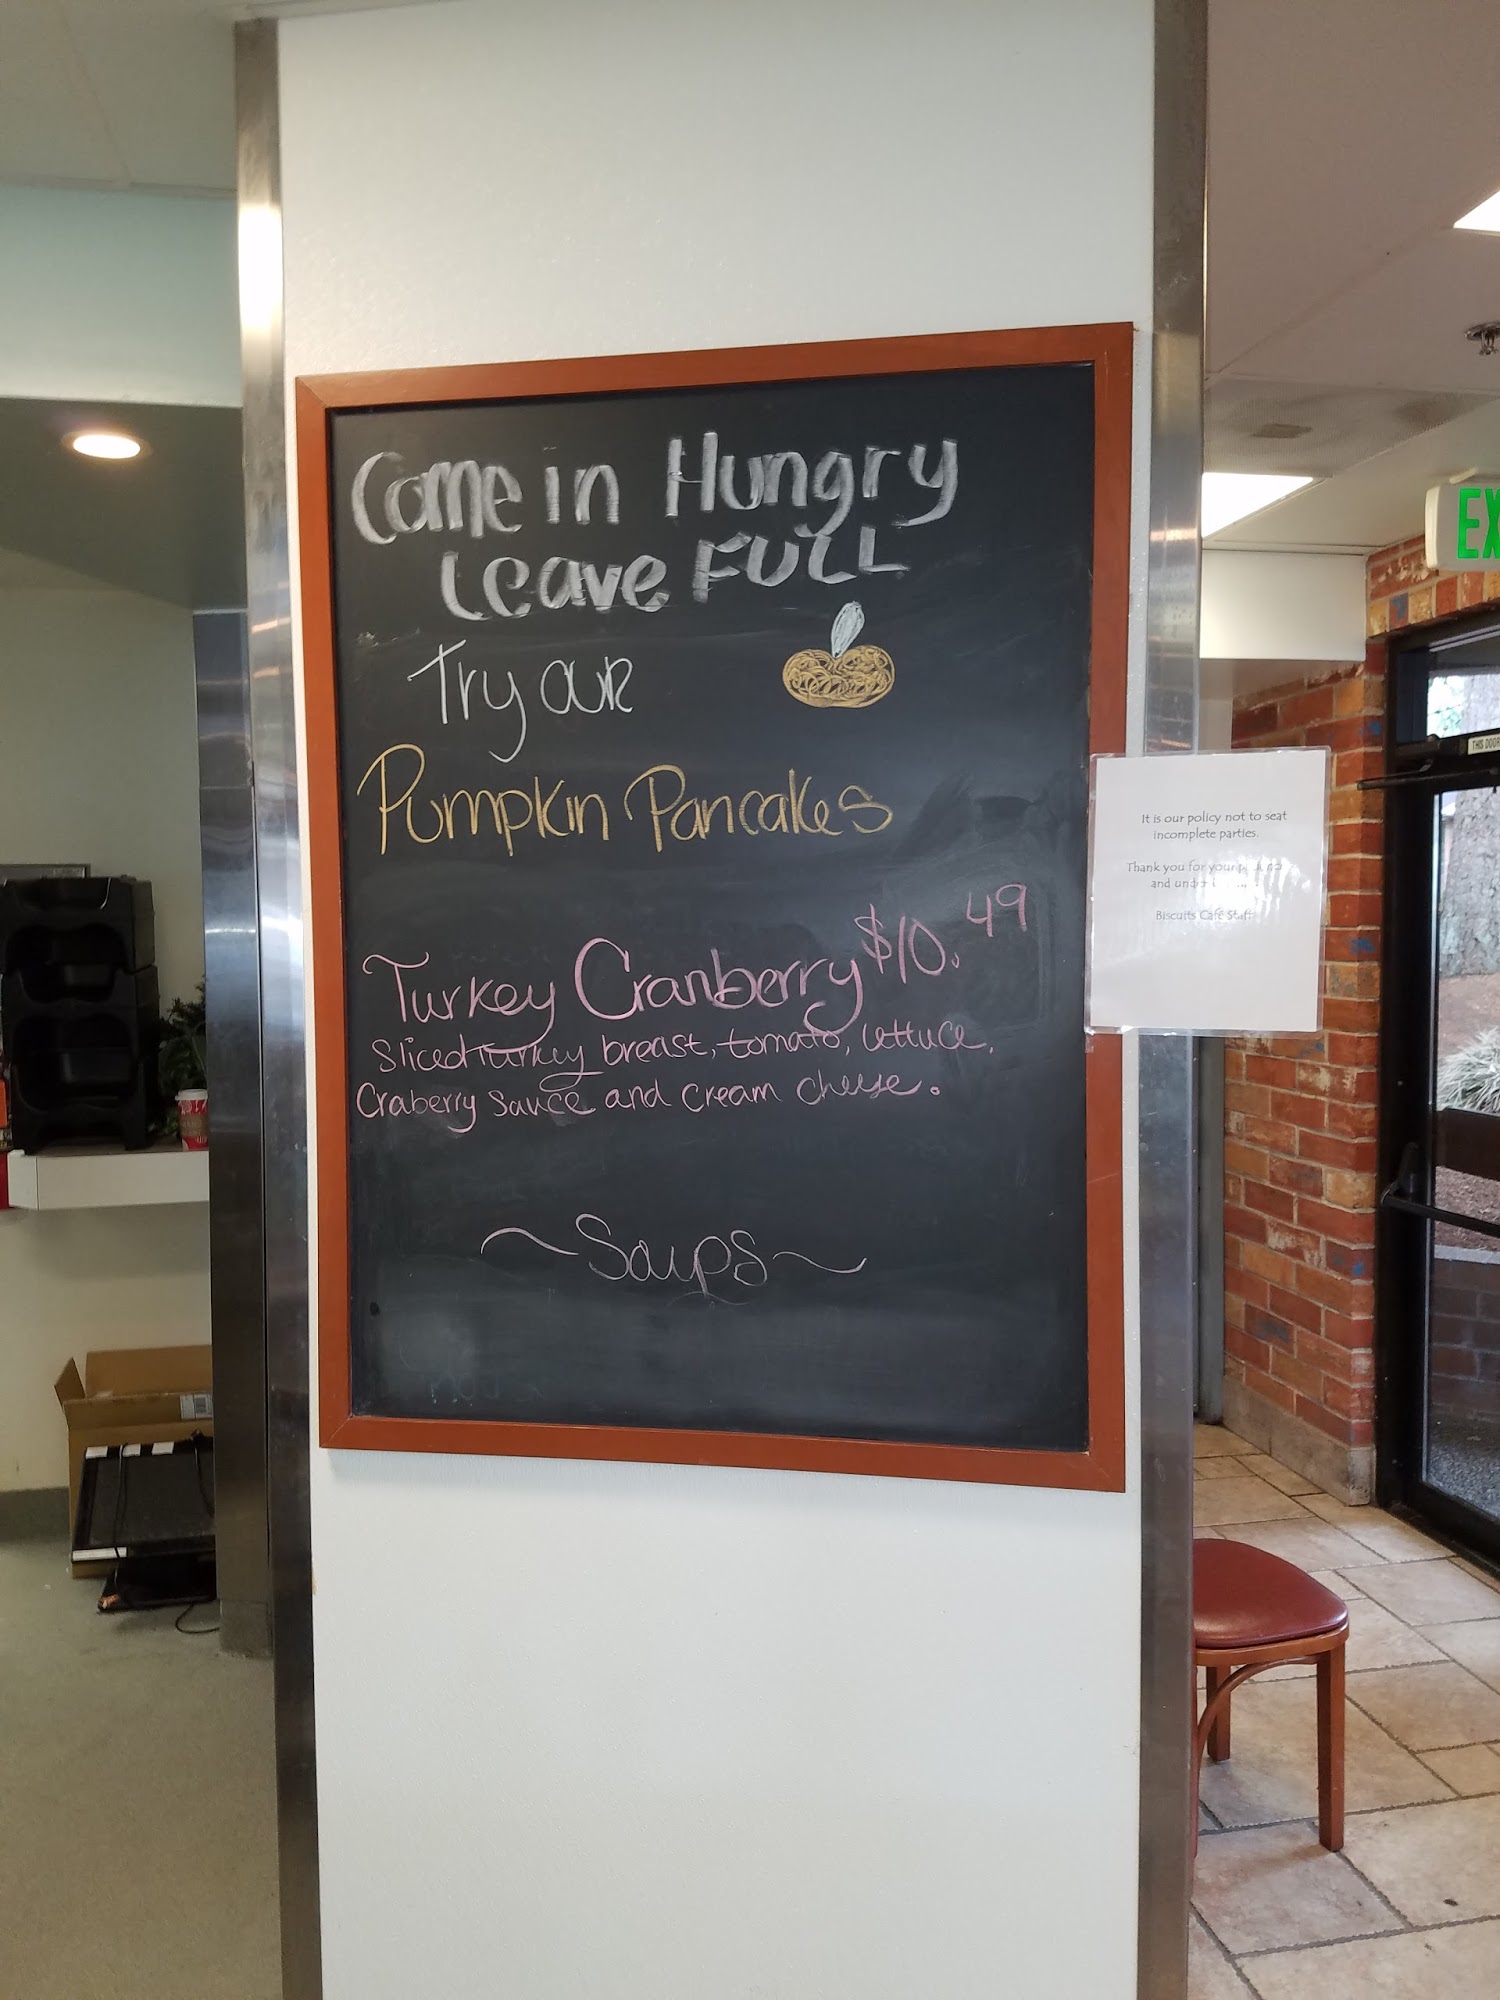 Come in Hungry
Leave FULL
Try our
Pumpkin Pancakes
Turkey Cranberry $10.49
Sliced Turkey breast, tomato, lettuce,
Craberry Sauce and cream cheese.
~Soups~
It is our policy not to seat
incomplete parties.
Thank you for your
and
Biscuits Café Staff
EX
THIS DOOR